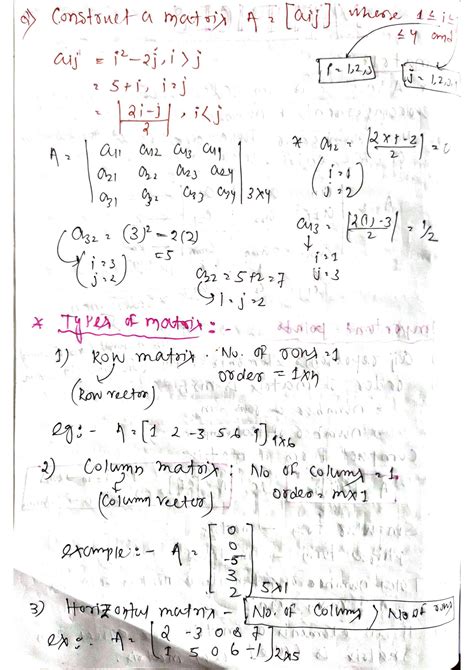 Q) Construct a matrix A = [aij] where 1 ≤ i ≤
≤ 4 and
aij = i² - 2j, i > j
= 5 + i, i = j
= |2i-j|/2, i < j
i = 1,2,3
j = 1,2,3,
A = | a11 a12 a13 a14
a21 a22 a23 a24
a31 a32 a33 a34 | 3x4
* a12 = |2x1-2|/2 = 0
(i=1
j=2)
a32 = (3)² - 2(2)
= 5
(i=3
j=2)
a13 = |2(1)-3|/2 = 1/2
i=1
j=3
a22 = 5+2 = 7
i=j=2
* Types of matrix : -
1) Row matrix . No. of rows = 1
order = 1xn
(Row vector)
eg:- A = [1 2 -3 5 6 9] 1x6
2) Column matrix : No of colums = 1
order = mx1
(Column vector)
example :- A = [0
0
-5
3
2] 5x1
3) Horizontal matrix - No. of Colums > No of rows
ex:- A = [2 -3 0 8 7
1 5 0 6 -1] 2x5